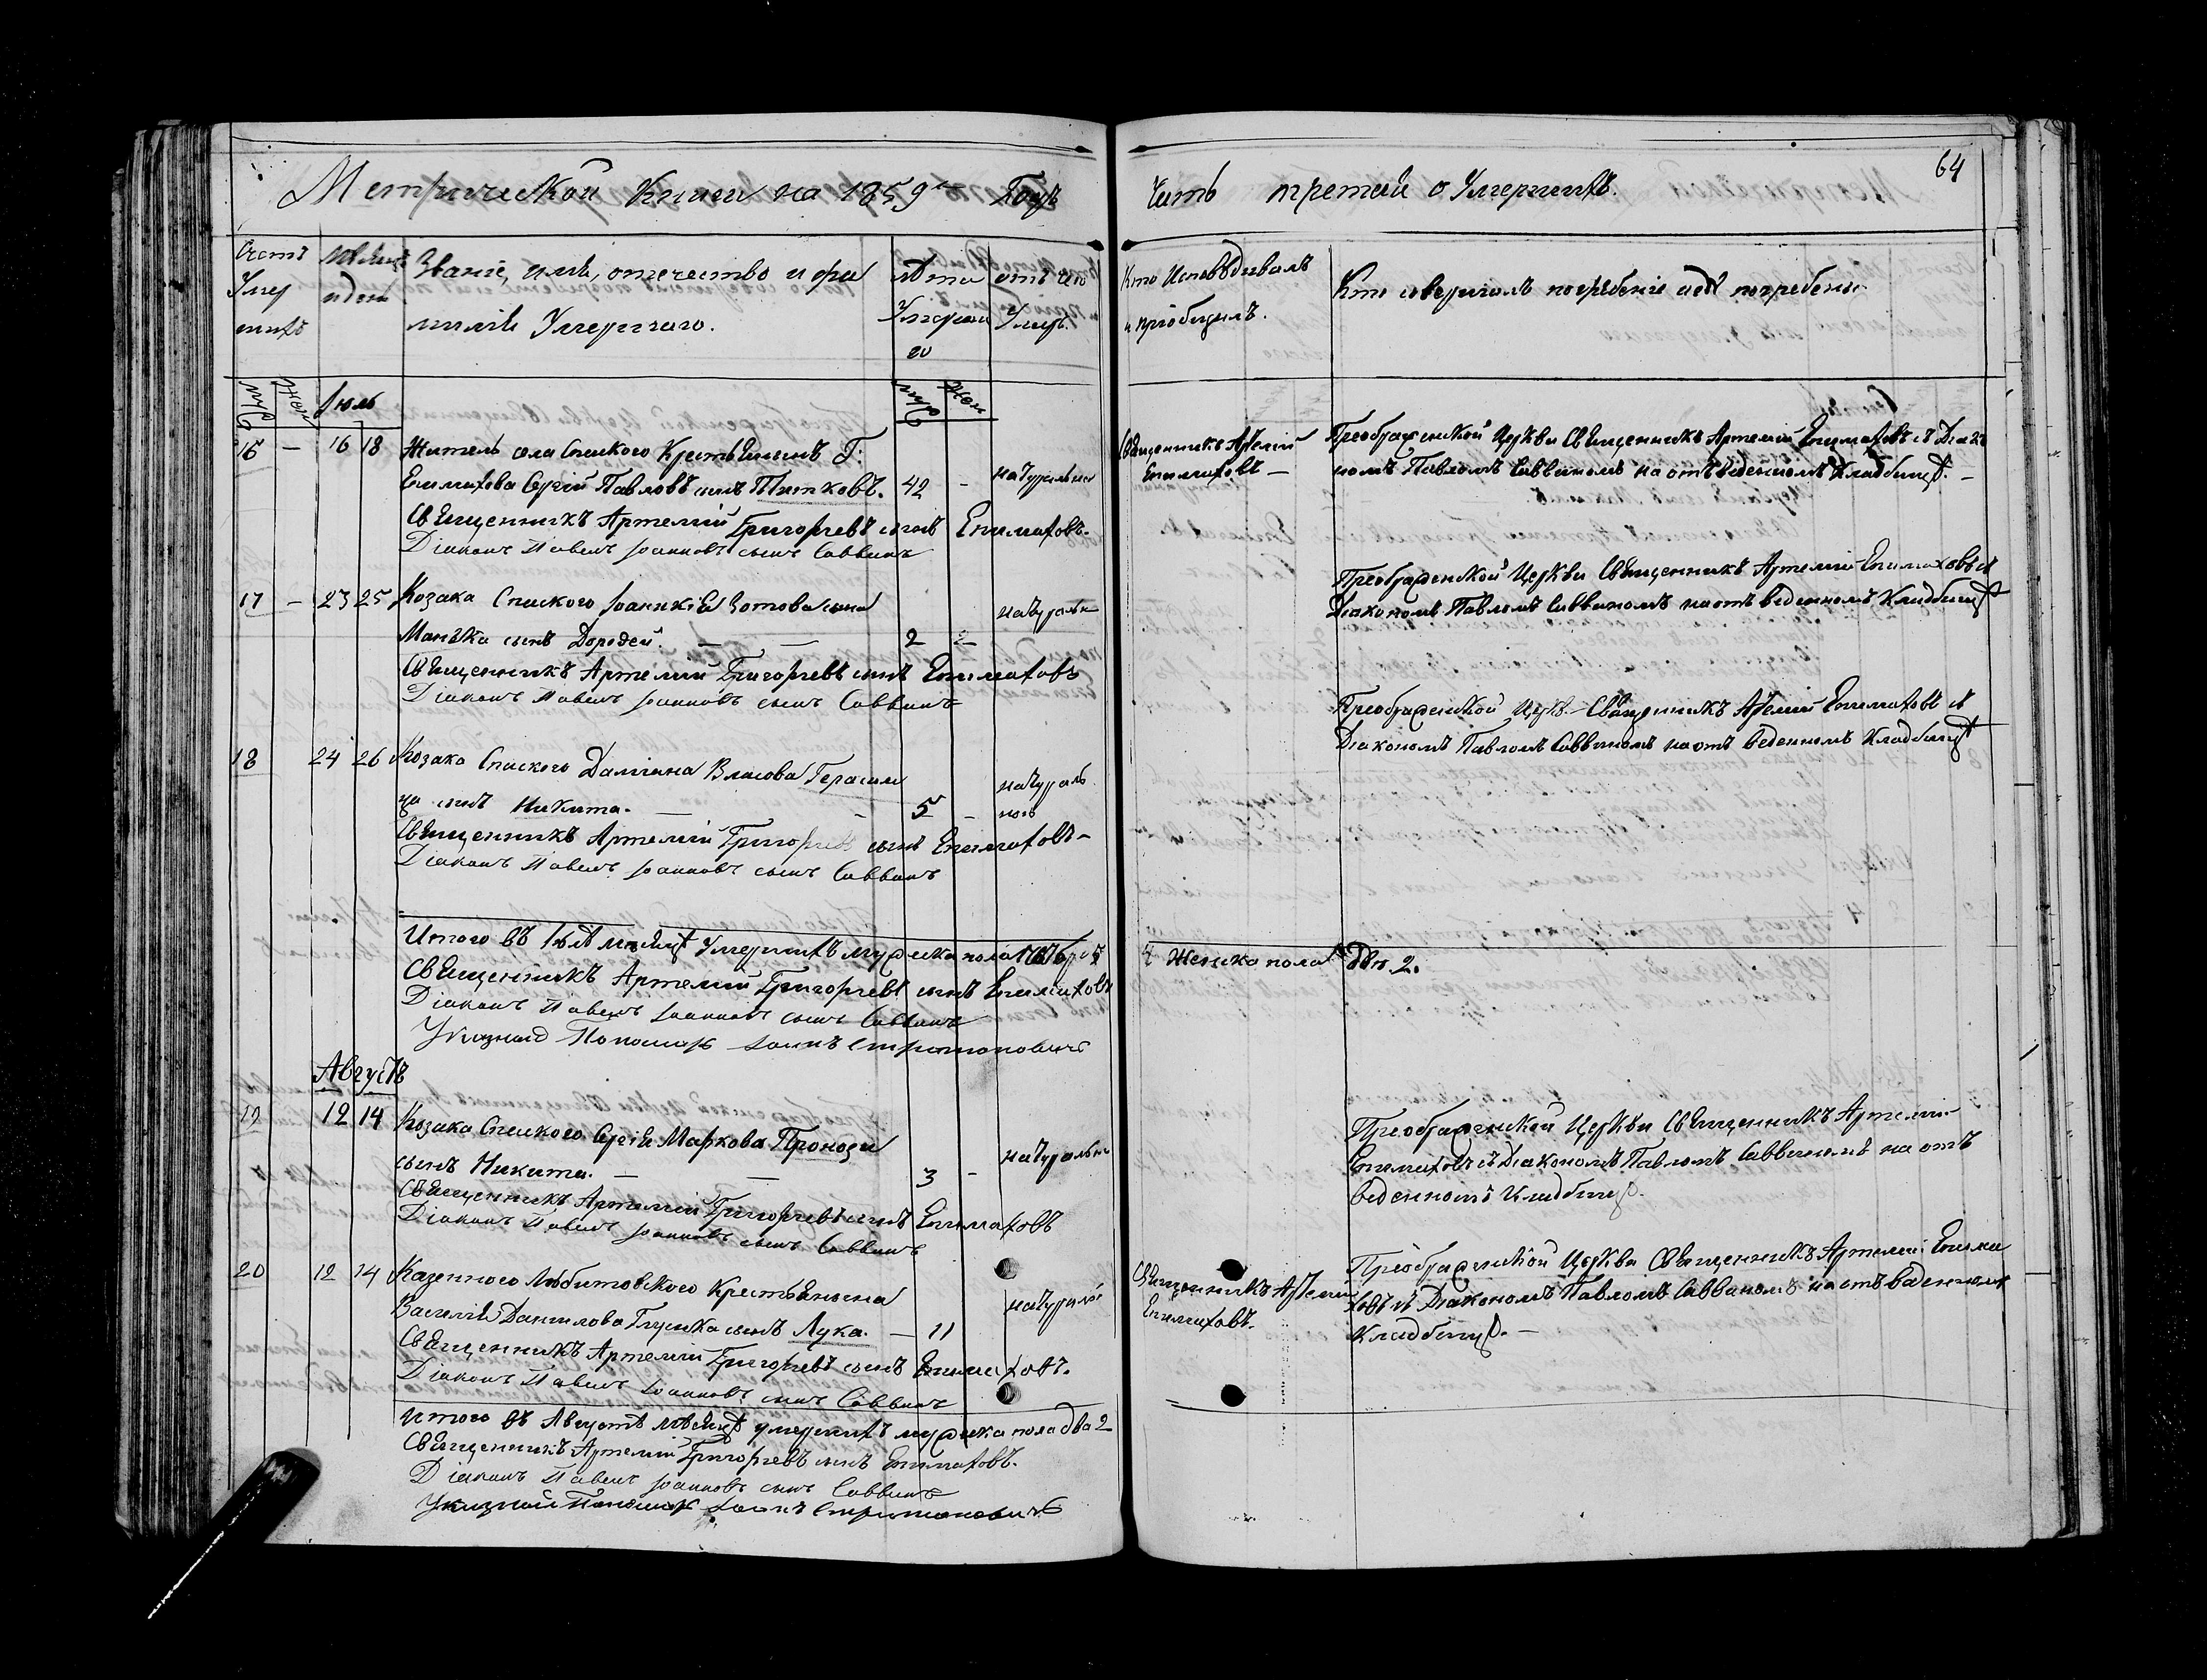 Метрической Книги на 1859й Годъ
Счетъ Умершихъ
Мѣсяцъ и день
Званіе, имя, отечество и фа
милія Умершаго.
Лѣта Умершаго
отъ чего Умеръ
муж
жен
Іюль
муж
жен
16 – 16 18 Житель села Спаского Крестьянинъ Г:
Епимахова Сергій Павловъ сынъ Пятковъ. 42 - натурально
Священникъ Артемій Григорьевъ сынъ Епимаховъ.
Діаконъ Павелъ Іоанновъ сынъ Саввинъ
17 – 23 25 Козака Спаского Іоаникія Зотова сына
Манька сынъ Дорофей. — — 2 натурально
Священникъ Артемій Григорьевъ сынъ Епимаховъ
Діаконъ Павелъ Іоанновъ сынъ Саввинъ
18 24 26 Козака Спаского Даміана Власова Герасим
ца сынъ Никита. — - 5 - натурально
Священникъ Артемій Григорьевъ сынъ Епимаховъ-
Діаконъ Павелъ Іоанновъ сынъ Саввинъ
Итого въ Іюлѣ мѣсяцѣ Умершихъ мужска пола
Священникъ Артемій Григорьевъ сынъ Епимаховъ
Діаконъ Павелъ Іоанновъ сынъ Саввинъ
Указной Пономарь Іоаннъ
Августъ
19 12 14 Козака Спаского Сергія Маркова Пронози
сынъ Никита. — — 3 - натурально
Священникъ Артемій Григорьевъ сынъ Епимаховъ
Діаконъ Павелъ Іоанновъ сынъ Саввинъ
20 12 14 Казенного Любитовского Крестьянина
Василія Данилова Глушка сынъ Лука. — 11 натураль
Священникъ Артемій Григорьевъ сынъ Епимаховъ.
Діаконъ Павелъ Іоанновъ сынъ Саввинъ
Итого въ Августѣ мѣсяцѣ умершихъ мужска пола два 2
Священникъ Артемій Григорьевъ сынъ Епимаховъ.
Діаконъ Павелъ Іоанновъ сынъ Саввинъ
Указной Пономарь Іоаннъ
64
Часть третая о Умершихъ.
Кто Исповѣдывалъ
и пріобщилъ.
Кто совершалъ погребеніе и гдѣ погребены
Священникъ Артемій
Епимаховъ —
Преображенской Церкви Священникъ Артемій Епимаховъ съ Діако
номъ Павломъ Саввиномъ на отъведенномъ Кладбищѣ. -
Преображенской Церкви Священникъ Артемій Епимаховъ съ
Діакономъ Павломъ Саввиномъ на отъведенномъ Кладбищѣ
Преображенской Церкв. Священникъ Артемій Епимаховъ съ
Діакономъ Павломъ Саввиномъ на отъведенномъ Кладбищѣ
4 Женска пола двѣ 2.
Преображенской Церкви Священникъ Артемій
Епимаховъ съ Діакономъ Павломъ Саввиномъ на отъ
веденномъ Кладбищѣ.
Священникъ Артемій
Епимаховъ.
Преображенской Церкви Священникъ Артемій Епима
ховъ съ Діакономъ Павломъ Саввиномъ на отъведенномъ
Кладбищѣ. —